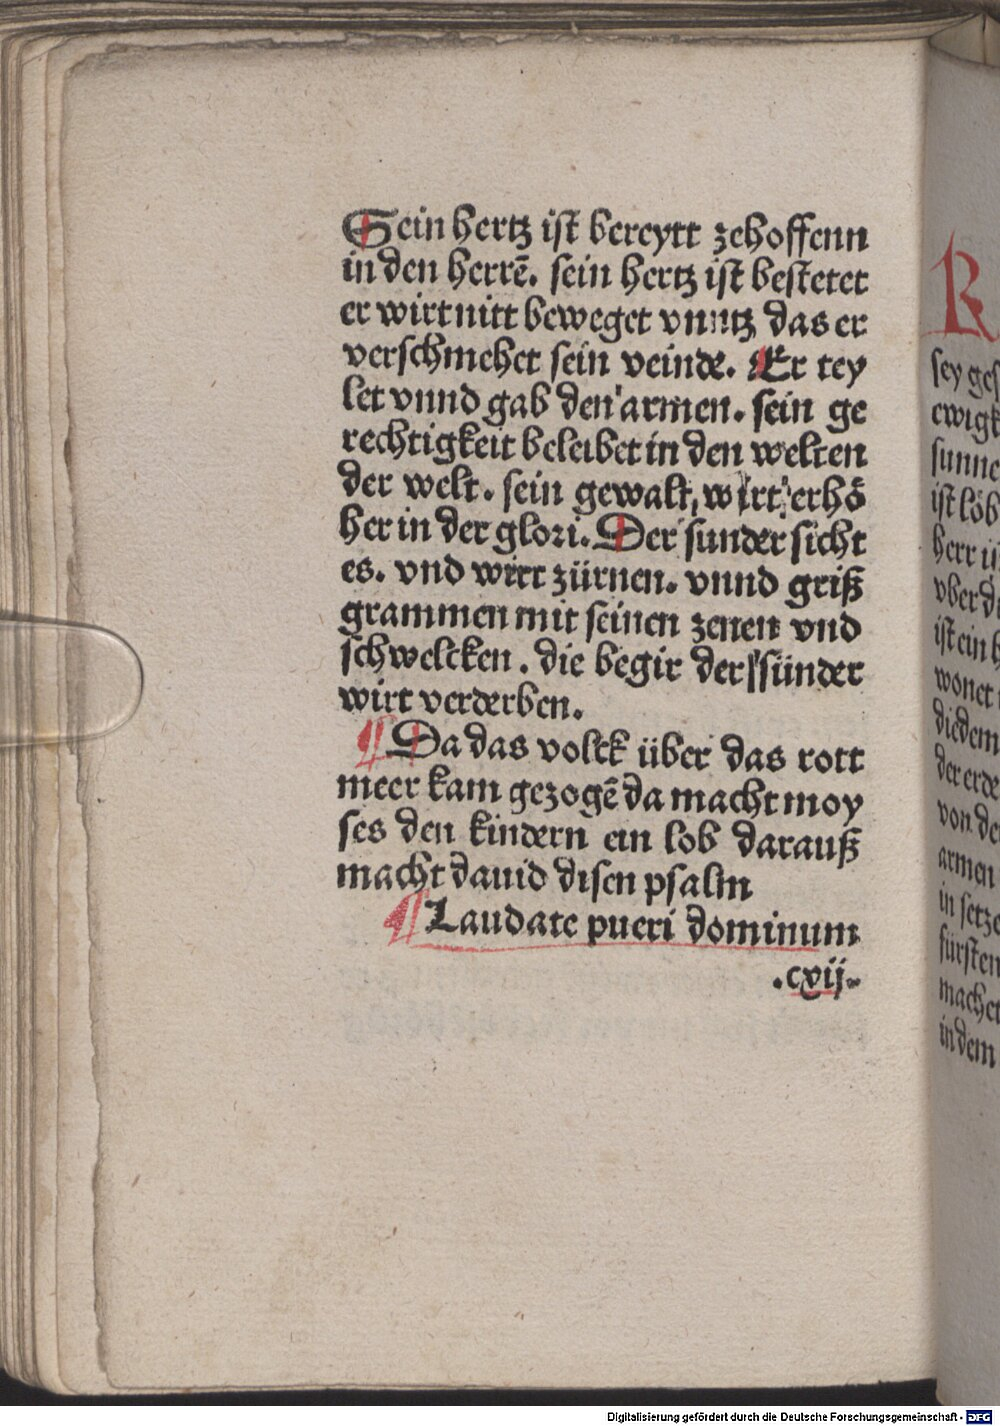 Sein hertz ist bereytt zehoffenn
in den herrē. sein hertz ist bestetet
er wirt nitt beweget vnntz das er
verschmehet sein veinde. Er tey
let vnnd gab den armen. sein ge
rechtigkeit beleibet in den welten
der welt. sein gewalt wirt erhö
het in der glori. Der sunder sicht
es. vnd wirt zürnen. vnnd griß
grammen mit seinen zenen vnd
schwelcken. die begir der sünder
wirt verderben.
¶ Da das volck über das rott
meer kam gezogē da macht moy
ses den kindern ein lob darauß
macht dauid disen psalm
¶ Laudate pueri dominum
.cxij.
R
sey ges
ewigk
sunne
ist löb
herr ü
vber d
ist ein h
wonet
diedem
der erde
von de
armen
in setze
fürsten
machet
in dem
Digitalisierung gefördert durch die Deutsche Forschungsgemeinschaft - DFG